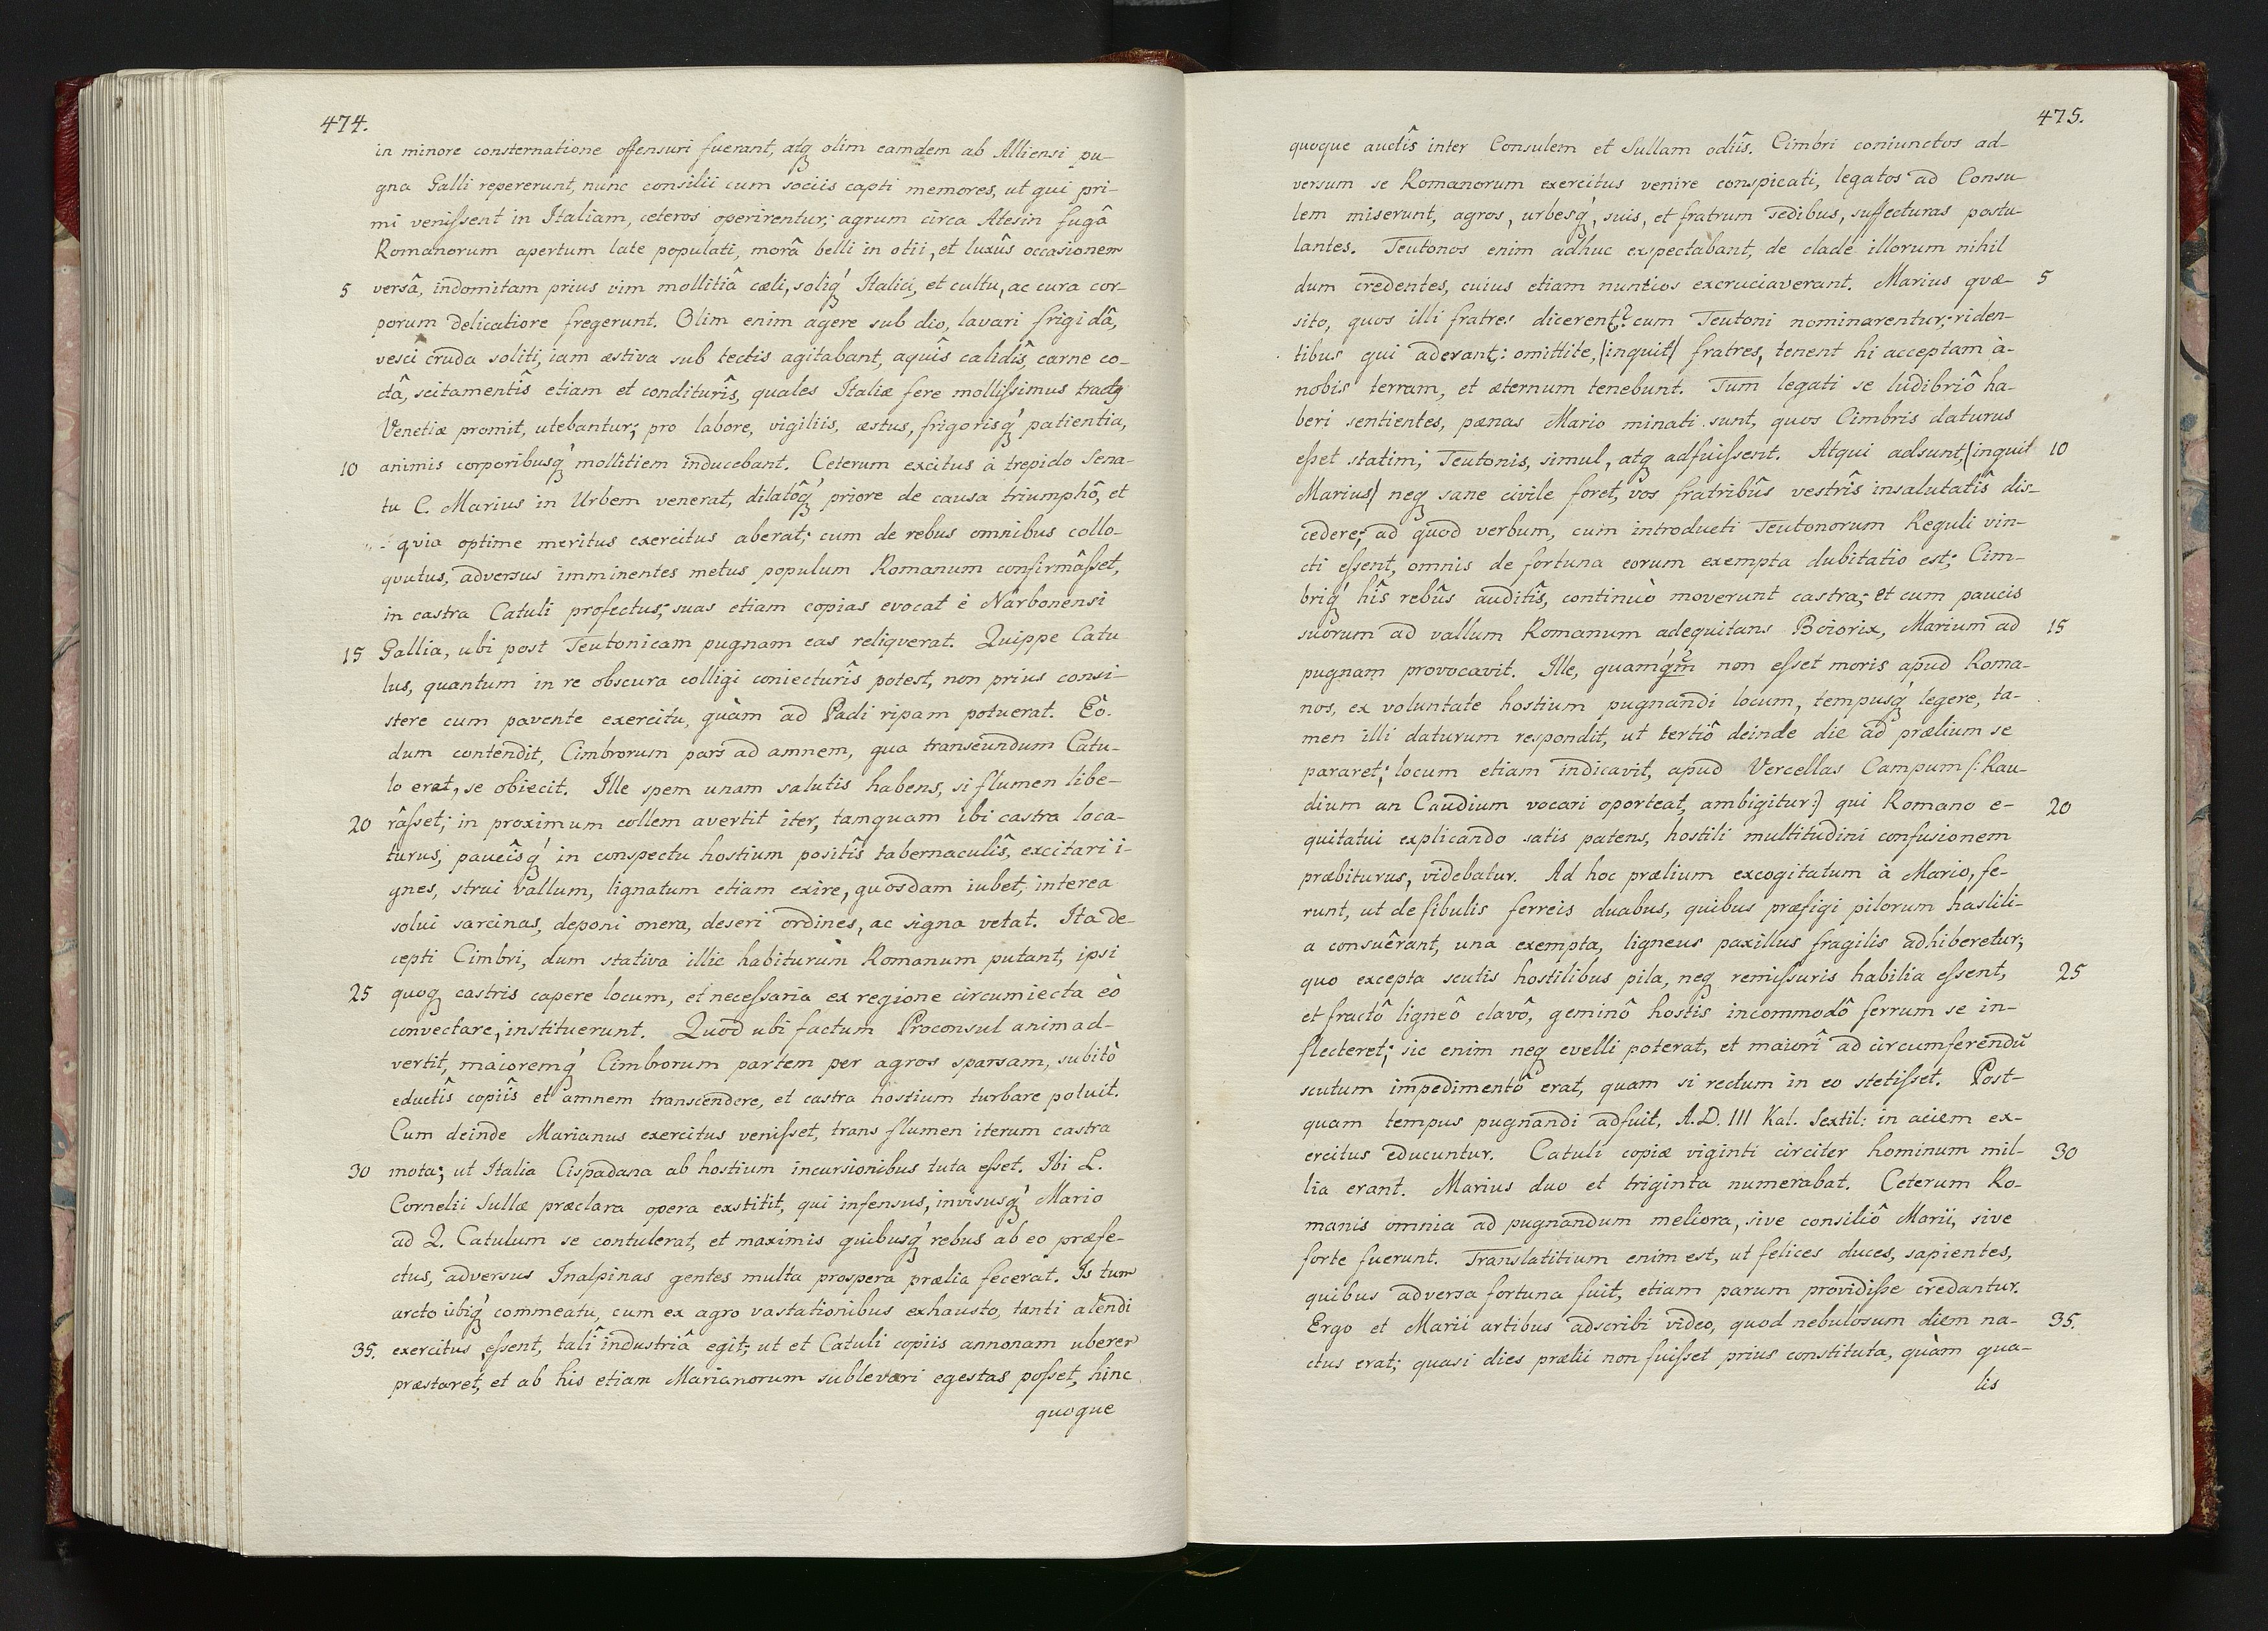 474.
in minore consternatione offensuri fuerant, atq olim eamdem ab Alliensi pu-
gna Galli repererunt, nunc consilii cum sociis capti memores, ut qui pri-
mi venissent in Italiam, ceteros operirentur; agrum circa Atesin fugâ
Romanorum apertum late populati, morâ belli in otii, et luxûs occasionem
5 versâ, indomitam prius vim mollitiâ cæli, soliq́ Italici, et cultu, ac cura cor-
porum delicatiore fregerunt. Olim enim agere sub dio, lavari frigidâ,
vesci cruda soliti, iam æstiva sub tectis agitabant, aquîs calidîs, carne co-
ctâ, scitamentîs etiam et conditurîs, quales Italiæ fere mollissimus tractq
Venetiæ promit, utebantur; pro labore, vigiliis, æstus, frigorisq́ patientia,
10 animis corporibusq́ mollitiem inducebant. Ceterum excitus à trepido Sena-
tu C. Marius in Urbem venerat, dilatôq́ priore de causa triumphô, et
qvia optime meritus exercitus aberat; cum de rebus omnibus collo-
qvutus, adversus imminentes metus populum Romanum confirmâsset,
in castra Catuli profectus; suas etiam copias evocat è Narbonensi
15 Gallia, ubi post Teutonicam pugnam eas reliqverat. Quippe Catu
lus, quantum in re obscura colligi coniecturîs potest, non prius consi-
stere cum pavente exercitu, quàm ad Padi ripam potuerat. Eò.
dum contendit, Cimbrorum pars ad amnem, qua transeundum Catu-
lo erat, se obiecit. Ille spem unam salutis habens, si flumen libe-
20 râsset; in proximum collem avertit iter, tamquam ibi castra loca-
turus; paucîsq́ in conspectu hostium positîs tabernaculîs, excitari i-
gnes, strui vallum, lignatum etiam exire, quosdam iubet; interea
solui sarcinas, deponi onera, deseri ordines, ac signa vetat. Ita de-
cepti Cimbri, dum stativa illic habiturum Romanum putant, ipsi
25 quoq castris capere locum, et necessaria ex regione circumiecta eò
convectare, instituerunt. Quod ubi factum Proconsul animad-
vertit, maioremq́ Cimborum partem per agros sparsam, subitò
eductîs copiîs et amnem transcendere, et castra hostium turbare potuit.
Cum deinde Marianus exercitus venisset, trans flumen iterum castra
30 mota; ut Italia Cispadana ab hostium incursionibus tuta esset. Ibi L.
Cornelii Sullæ præclara opera exstitit, qui infensus, invisusq́ Mario
ad Q. Catulum se contulerat, et maximis quibusq́ rebus ab eo præfe-
ctus, adversus Inalpinas gentes multa prospera prælia fecerat. Is tum
arcto ubiq́ commeatu, cum ex agro vastationibus exhausto, tanti alendi
35. exercitus essent, talî industriâ egit; ut et Catuli copiis annonam uberem
præstaret, et ab his etiam Marianorum sublevari egestas posset, hinc
quoque
475.
quoque auctîs inter Consulem et Sullam odiîs. Cimbri coniunctos ad-
versum se Romanorum exercitus venire conspicati, legatos ad Consu-
lem miserunt, agros, urbesq́, suis, et fratrum sedibus, suffecturas postu-
lantes. Teutonos enim adhuc exspectabant, de clade illorum nihil
dum credentes, cuius etiam nuntios excruciaverant. Marius quæ- 5
sito, quos illi fratres dicerent? cum Teutoni nominarentur; riden-
tibus qui aderant: omittite, (inquit) fratres, tenent hi acceptam à-
nobis terram, et æternum tenebunt. Tum legati se ludibriô ha-
beri sentientes, pænas Mario minati sunt, quos Cimbris daturus
esset statim; Teutonis, simul, atq adfuissent. Atqui adsunt, (inquit 10
Marius) neq sane civile foret, vos fratribûs vestrîs insalutatîs dis-
cedere; ad quod verbum, cum introducti Teutonorum Reguli vin-
cti essent, omnis de fortuna eorum exempta dubitatio est; Cim-
briq́ hîs rebûs auditîs, continuò moverunt castra; et cum paucis
suorum ad vallum Romanum adequitans Boiorix, Marium ad 15
pugnam provocavit. Ille, quamq́m non esset moris apud Roma-
nos, ex voluntate hostium pugnandi locum, tempusq́ legere, ta-
men illi daturum respondit, ut tertiô deinde die ad prælium se
pararet; locum etiam indicavit, apud Vercellas Campum (: Rau-
dium an Caudium vocari oporteat, ambigitur:) qui Romano e- 20
quitatui explicando satis patens, hostili multitudini confusionem
præbiturus, videbatur. Ad hoc prælium excogitatum à Mario, fe-
runt, ut de fibulis ferreis duabus, quibus præfigi pilorum hastili-
a consuêrant, una exempta, ligneus paxillus fragilis adhiberetur;
quo excepta scutis hostilibus pila, neq remissuris habilia essent, 25
et fractô ligneô clavô, geminô hostis incommodô ferrum se in-
flecteret; sic enim neq evelli poterat, et maiorî ad circumferendū
scutum impedimentô erat, quam si rectum in eo stetisset. Post-
quam tempus pugnandi adfuit, A.D. III Kal. Sextil: in aciem ex-
ercitus educuntur. Catuli copiæ viginti circiter hominum mil- 30
lia erant. Marius duo et triginta numerabat. Ceterum Ro-
manis omnia ad pugnandum meliora, sive consiliô Marii, sive
forte fuerunt. Translatitium enim est, ut felices duces, sapientes,
quibus adversa fortuna fuit, etiam parum providisse credantur.
Ergo et Marii artibus adscribi video, quod nebulosum diem na- 35.
ctus erat; quasi dies prælii non fuisset prius constituta, quàm qua-
lis